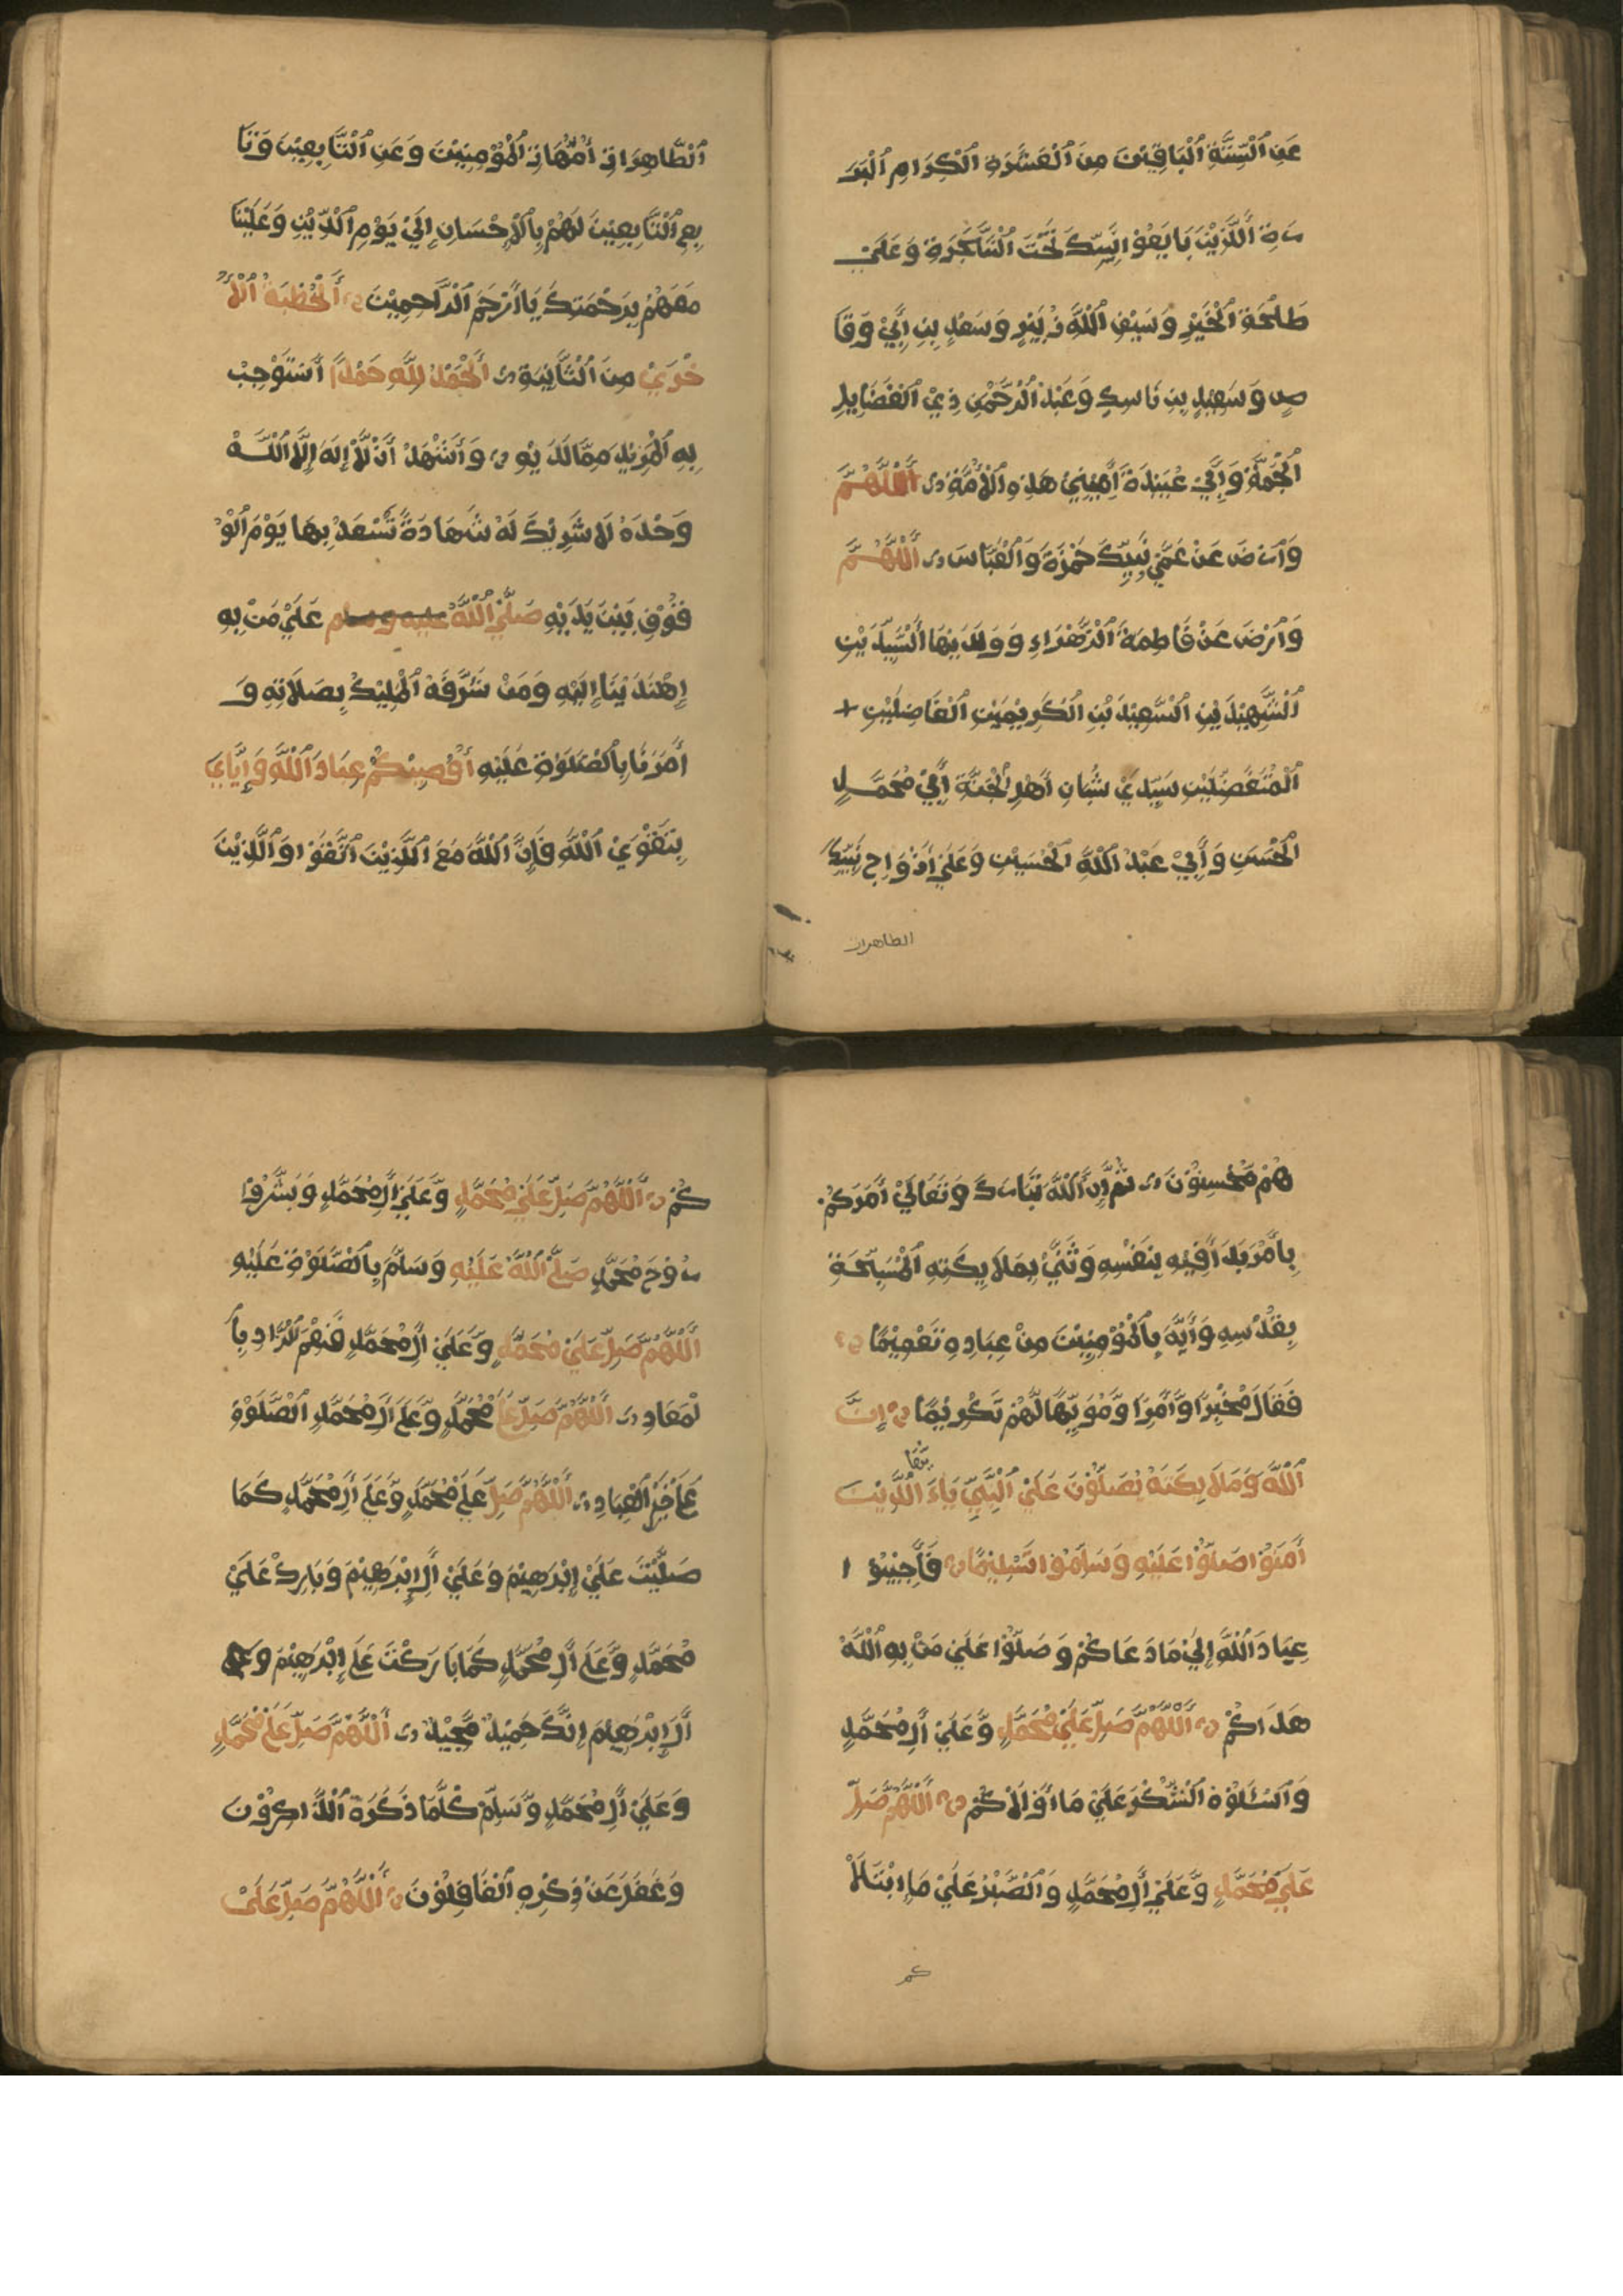 عَنِ ٱلْسِّتَّةِ ٱلْبَاقِيْنَ مِنَ ٱلْعَشَرَةِ ٱلْكِرَامِ ٱلْبَرَ
رَةِ ٱلَّذِيْنَ بَايَعُوْا نَبِيِّكَ تَحْتَ ٱلْشَّجَرَةِ وَعَلَيْ
طَلْحَةِ ٱلْخَيْرِ وَسَيْفِ ٱللّٰهِ زُبَيْرٍ وَسَعْدِ بِنِ اَبِيْ وَقَا
صٍ وَسَعِيْدِ بِنِ نَاسِكِ وَعَبْدُ ٱلْرَّحْمٰنِ ذِيْ ٱلْفَضَايِلِ
ٱلْجُمَّةِ وَاَبِيْ عُبَيْدَةَ اَمِيْنِيْ هَذِهِ ٱلْاُمَّةِ اَللّٰهُمَّ
وَٱرْضَ عَنْ عَمَّيْ نَبِيِّكَ حَمْزَةَ وَٱلْعَبَّاسَ اَللّٰهُمَّ
وَٱرْضَ عَنْ فَاطِمَةَ ٱلْزَّهْرَاءِ وَوَلَدَيْهَا ٱلْسَّيِّدَيْنِ
ٱلْشَّهِيْدَيْنِ ٱلْسَّعِيْدَيْنِ ٱلْكَرِيْمَيْنِ ٱلْفَاضِلَيْنِ
ٱلْمُتَفَضِّلَيْنِ سَيِّدَيْ شُبَانِ اَهْلِ ٱلْجَنَّةِ اَبِيْ مُحَمَّدٍ
ٱلْحَسَنِ وَاَبِيْ عَبْدُ ٱللّٰهِ ٱلْحُسَيْنِ وَعَلَيْ اَزْوَاجِ نَبِيِّكَ
الطاهرات
ٱلْطَّاهِرَاتِ اُمَّهَاتِ ٱلْمُؤْمِنِيْنَ وَعَنِ ٱلْتَّابِعِيْنَ وَتَا
بِعِ ٱلْتَّابِعِيْنَ لَهُمْ بِالْاِحْسَانِ اِلَيْ يَوْمِ ٱلْدِّيْنِ وَعَلَيْنَا
مَعَهُمْ بِرَحْمَتِكَ يَا اَرْحَمَ ٱلْرَّاحِمِيْنَ اَلْخُطْبَةُ ٱلْاُ
خْرَيْ مِنَ ٱلْثَّانِيَةِ اَلْحَمْدُ لِلّٰهِ حَمْدًا اَسْتَوْجِبْ
بِهِ ٱلْمَزِيْدِ مِمَّا لَدَيْهِ وَاَشْهَدْ اَنْ لَّا اِلٰهَ اِلَّا ٱللّٰهْ
وَحْدَهُ لَا شَرِيْكَ لَهُ شَهَادَةً تَسْعَدْ بِهَا يَوْمَ ٱلْوُ
قُوْفِ بَيْنَ يَدَيْهِ صَلَّيْ ٱللّٰهُ عليه وسلم عَلَيْ مَنْ بِهِ
اِهْتَدَيْنَا اِلَيْهِ وَمَنْ شَرَّفَهُ ٱلْمَلِيْكُ بِصَلَاتِهِ وَ
اَمَرَنَا بِالْصَّلَوٰةِ عَلَيْهِ اُوْصِيْكُمْ عِبَادَ ٱللّٰهِ وَاِيَّايَ
بِتَقْوَيْ ٱللّٰهِ فَاِنَّ ٱللّٰهَ مَعَ ٱلَّذِيْنَ ٱتَّقَوْا وَٱلَّذِيْنَ
هُمْ مُحْسِنُوْنَ ثُمَّ اِنَّ ٱللّٰهَ تَبَارَكَ وَتَعَالَيْ اَمَرَكُمْ
بِاَمْرٍ بَدَأَ فِيْهِ بِنَفْسِهِ وَثَنَّيْ بِمَلَايِكَتِهِ ٱلْمُسَبِّحَةِ
بِقُدْسِهِ وَاَيَّهَ بِالْمُؤْمِنِيْنَ مِنْ عِبَادِهِ تَعْمِيْمًا
فَقَالَ مُخْبِرًا وَّاٰمِرًا وَّمُوَيِّهًا لَّهُمْ تَكْرِيْمًا اِنَّ
ٱللّٰهَ وَمَلَايِكَتَهُ يُصَلُّوْنَ عَلَيْ ٱلْنَّبِيِّ يَاءَيُّهَا ٱلَّذِيْنَ
اٰمَنُوْا صَلُّوْا عَلَيْهِ وَسَلِّمُوْا تَسْلِيْمًا فَاَجِيْبُوْ ا
عِبَادَ ٱللّٰهِ اِلَيْ مَا دَعَاكُمْ وَصَلُّوْا عَلَيْ مَنْ بِهِ ٱللّٰهُ
هَدَاكُمْ اَللّٰهُمَّ صَلِّ عَلَيْ مُحَمَّدٍ وَّعَلَيْ اٰلِ مُحَمَّدٍ
وَٱسْئَلُوْهُ ٱلْشُّكْرَ عَلَيْ مَا اَوْلَاكُمْ اَللّٰهُمَّ صَلِّ
عَلَيْ مُحَمَّدٍ وَّعَلَيْ اٰلِ مُحَمَّدٍ وَٱلْصَّبْرُ عَلَيْ مَا ٱبْتَلَا
كم
كُمْ اَللّٰهُمَّ صَلِّ عَلَيْ مُحَمَّدٍ وَّعَلَيْ اٰلِ مُحَمَّدٍ وَبَشِّرُوْا
رُوْحَ مُحَمَّدٍ صَلَّيْ ٱللّٰهُ عَلَيْهِ وَسَلَّمَ بِالْصَّلَوٰةِ عَلَيْهِ
اَللّٰهُمَّ صَلِّ عَلَيْ مُحَمَّدٍ وَّعَلَيْ اٰلِ مُحَمَّدٍ فَنِعْمَ ٱلْزَّادِ بِا
لْمَعَادِ اَللّٰهُمَّ صَلِّ عَلَيْ مُحَمَّدٍ وَّعَلَيْ اٰلِ مُحَمَّدٍ ٱلْصَّلَوٰةِ
عَلَيْ خَيْرِ ٱلْعِبَادِ اَللّٰهُمَّ صَلِّ عَلَيْ مُحَمَّدٍ وَّعَلَيْ اٰلِ مُحَمَّدٍ كَمَا
صَلَّيْتَ عَلَيْ اِبْرٰهِيْمَ وَعَلَيْ اٰلِ اِبْرٰهِيْمَ وَبَارِكْ عَلَيْ
مُحَمَّدٍ وَّعَلَيْ اٰلِ مُحَمَّدٍ كَمَا بَارَكْتَ عَلَيْ اِبْرٰهِيْمَ وَعَلَيْ
اٰلِ اِبْرٰهِيْمَ اِنَّكَ حَمِيْدٌ مَّجِيْدٌ اَللّٰهُمَّ صَلِّ عَلَيْ مُحَمَّدٍ
وَعَلَيْ اٰلِ مُحَمَّدٍ وَّسَلِّمْ كُلَّمَا ذَكَرَهُ ٱلْذَّاكِرُوْنَ
وَغَفَلَ عَنْ ذِكْرِهِ ٱلْغَافِلُوْنَ اَللّٰهُمَّ صَلِّ عَلَيْ